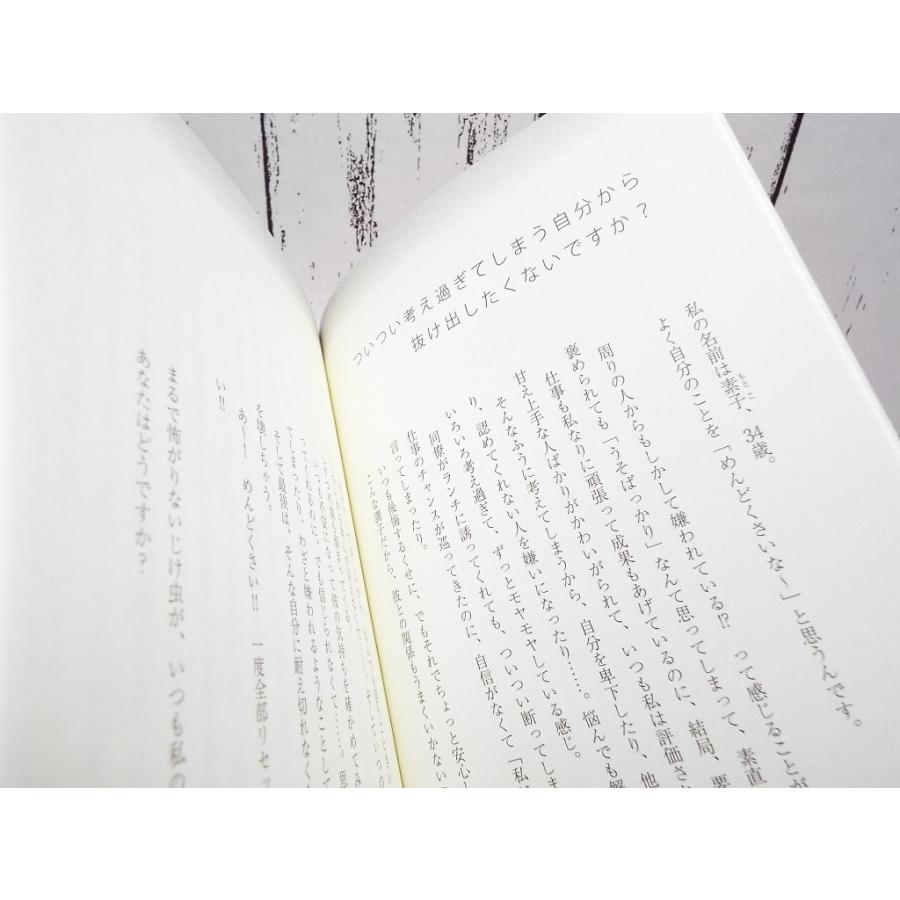 ついつい考え過ぎてしまう自分から
抜け出したくないですか？
私の名前は素子、34歳。
もとこ
よく自分のことを「めんどくさいな～」と思うんです。
周りの人からもしかして嫌われている!?　って感じることが
褒められても「うそばっかり」なんて思ってしまって、素直
仕事も私なりに頑張って成果もあげているのに、結局、要
甘え上手な人ばかりがかわいがられて、いつも私は評価さ
そんなふうに考えてしまうから、自分を卑下したり、他
り、認めてくれない人を嫌いになったり……。悩んでも解
いろいろ考え過ぎて、ずっとモヤモヤしている感じ。
同僚がランチに誘ってくれても、ついつい断ってしま
仕事のチャンスが巡ってきたのに、自信がなくて「私
言ってしまったり。
いつも後悔するくせに、でもそれでちょっと安心
こんな調子だから、彼との関係もうまくいかない
いつも不安になって彼の気持ちを確かめてみ
ってくれるのに、でも信じられなくて……。思
てしまったり、わざと嫌われるようなことして
そして最後は、そんな自分に耐え切れなく
そ壊しちゃう。
あ～！　めんどくさい!!　一度全部リセッ
い!!
まるで怖がりないじけ虫が、いつも私の
あなたはどうですか？